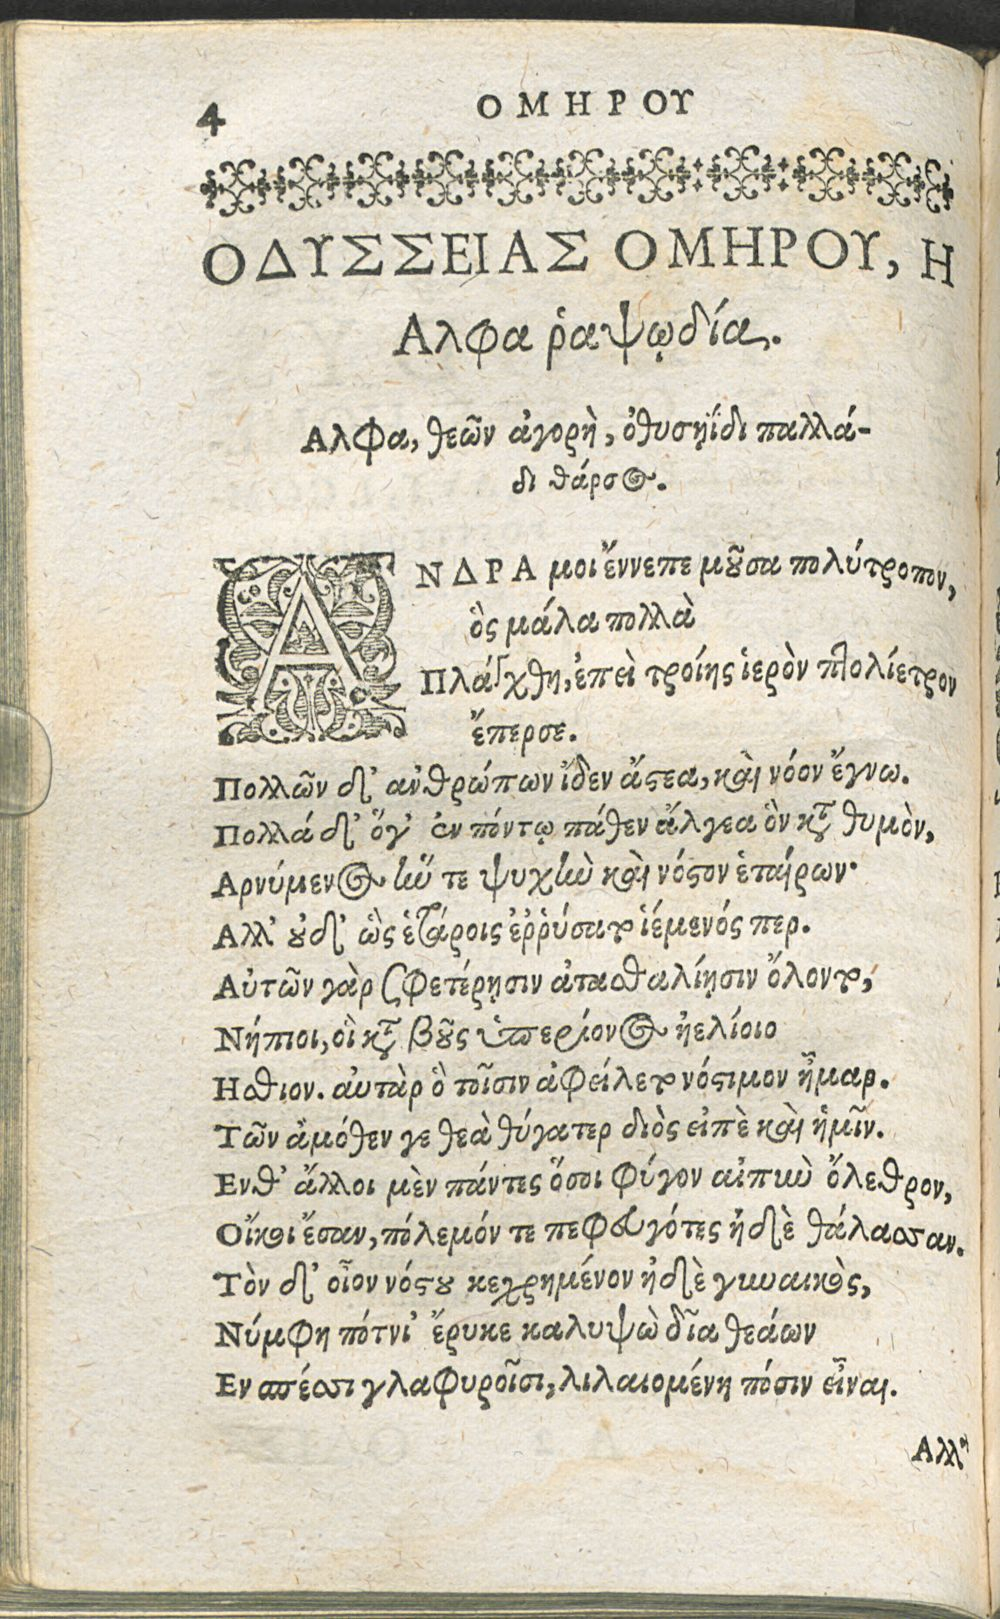 4
ΟΜΗΡΟΥ
ΟΔΥΣΣΕΙΑΣ ΟΜΗΡΟΥ, Η
Αλφα ῥαψῳδία.
Αλφα, θεῶν ἀγορὴ, ὀδυσῃΐδι παλλά-
δι θάρσος.
ΑΝΔΡΑ μοι ἔννεπε μοῦσα πολύτροπον,
ὃς μάλα πολλὰ
Πλάγχθη, ἐπεὶ τροίης ἱερὸν πτολίετρον
ἔπερσε.
Πολλῶν δ᾽ ἀνθρώπων ἴδεν ἄστεα, καὶ νόον ἔγνω.
Πολλά δ᾽ ὅγ᾽ ἐν πόντῳ πάθεν ἄλγεα ὃν κατὰ θυμὸν,
Αρνύμενος ἥν τε ψυχὴν καὶ νόστον ἑταίρων·
Αλλ᾽ οὐδ᾽ ὣς ἑτάροις ἐῤῥύσατο ἱέμενός περ.
Αὐτῶν γὰρ σφετέρῃσιν ἀτασθαλίῃσιν ὄλοντο,
Νήπιοι, οἳ κατὰ βοῦς ὑπερίονος ἠελίοιο
Ησθιον. αὐτὰρ ὃ τοῖσιν ἀφείλετο νόστιμον ἦμαρ.
Τῶν ἀμόθεν γε θεὰ θύγατερ διὸς εἰπὲ καὶ ἡμῖν.
Ενθ᾽ ἄλλοι μὲν πάντες ὅσοι φύγον αἰπὺν ὄλεθρον,
Οἴκοι ἔσαν, πόλεμόν τε πεφευγότες ἠδὲ θάλασσαν.
Τὸν δ᾽ οἶον νόστου κεχρημένον ἠδὲ γυναικὸς,
Νύμφη πότνι᾽ ἔρυκε καλυψὼ δῖα θεάων
Εν σπέσσι γλαφυροῖσι, λιλαιομένη πόσιν εἶναι.
Αλλ᾽